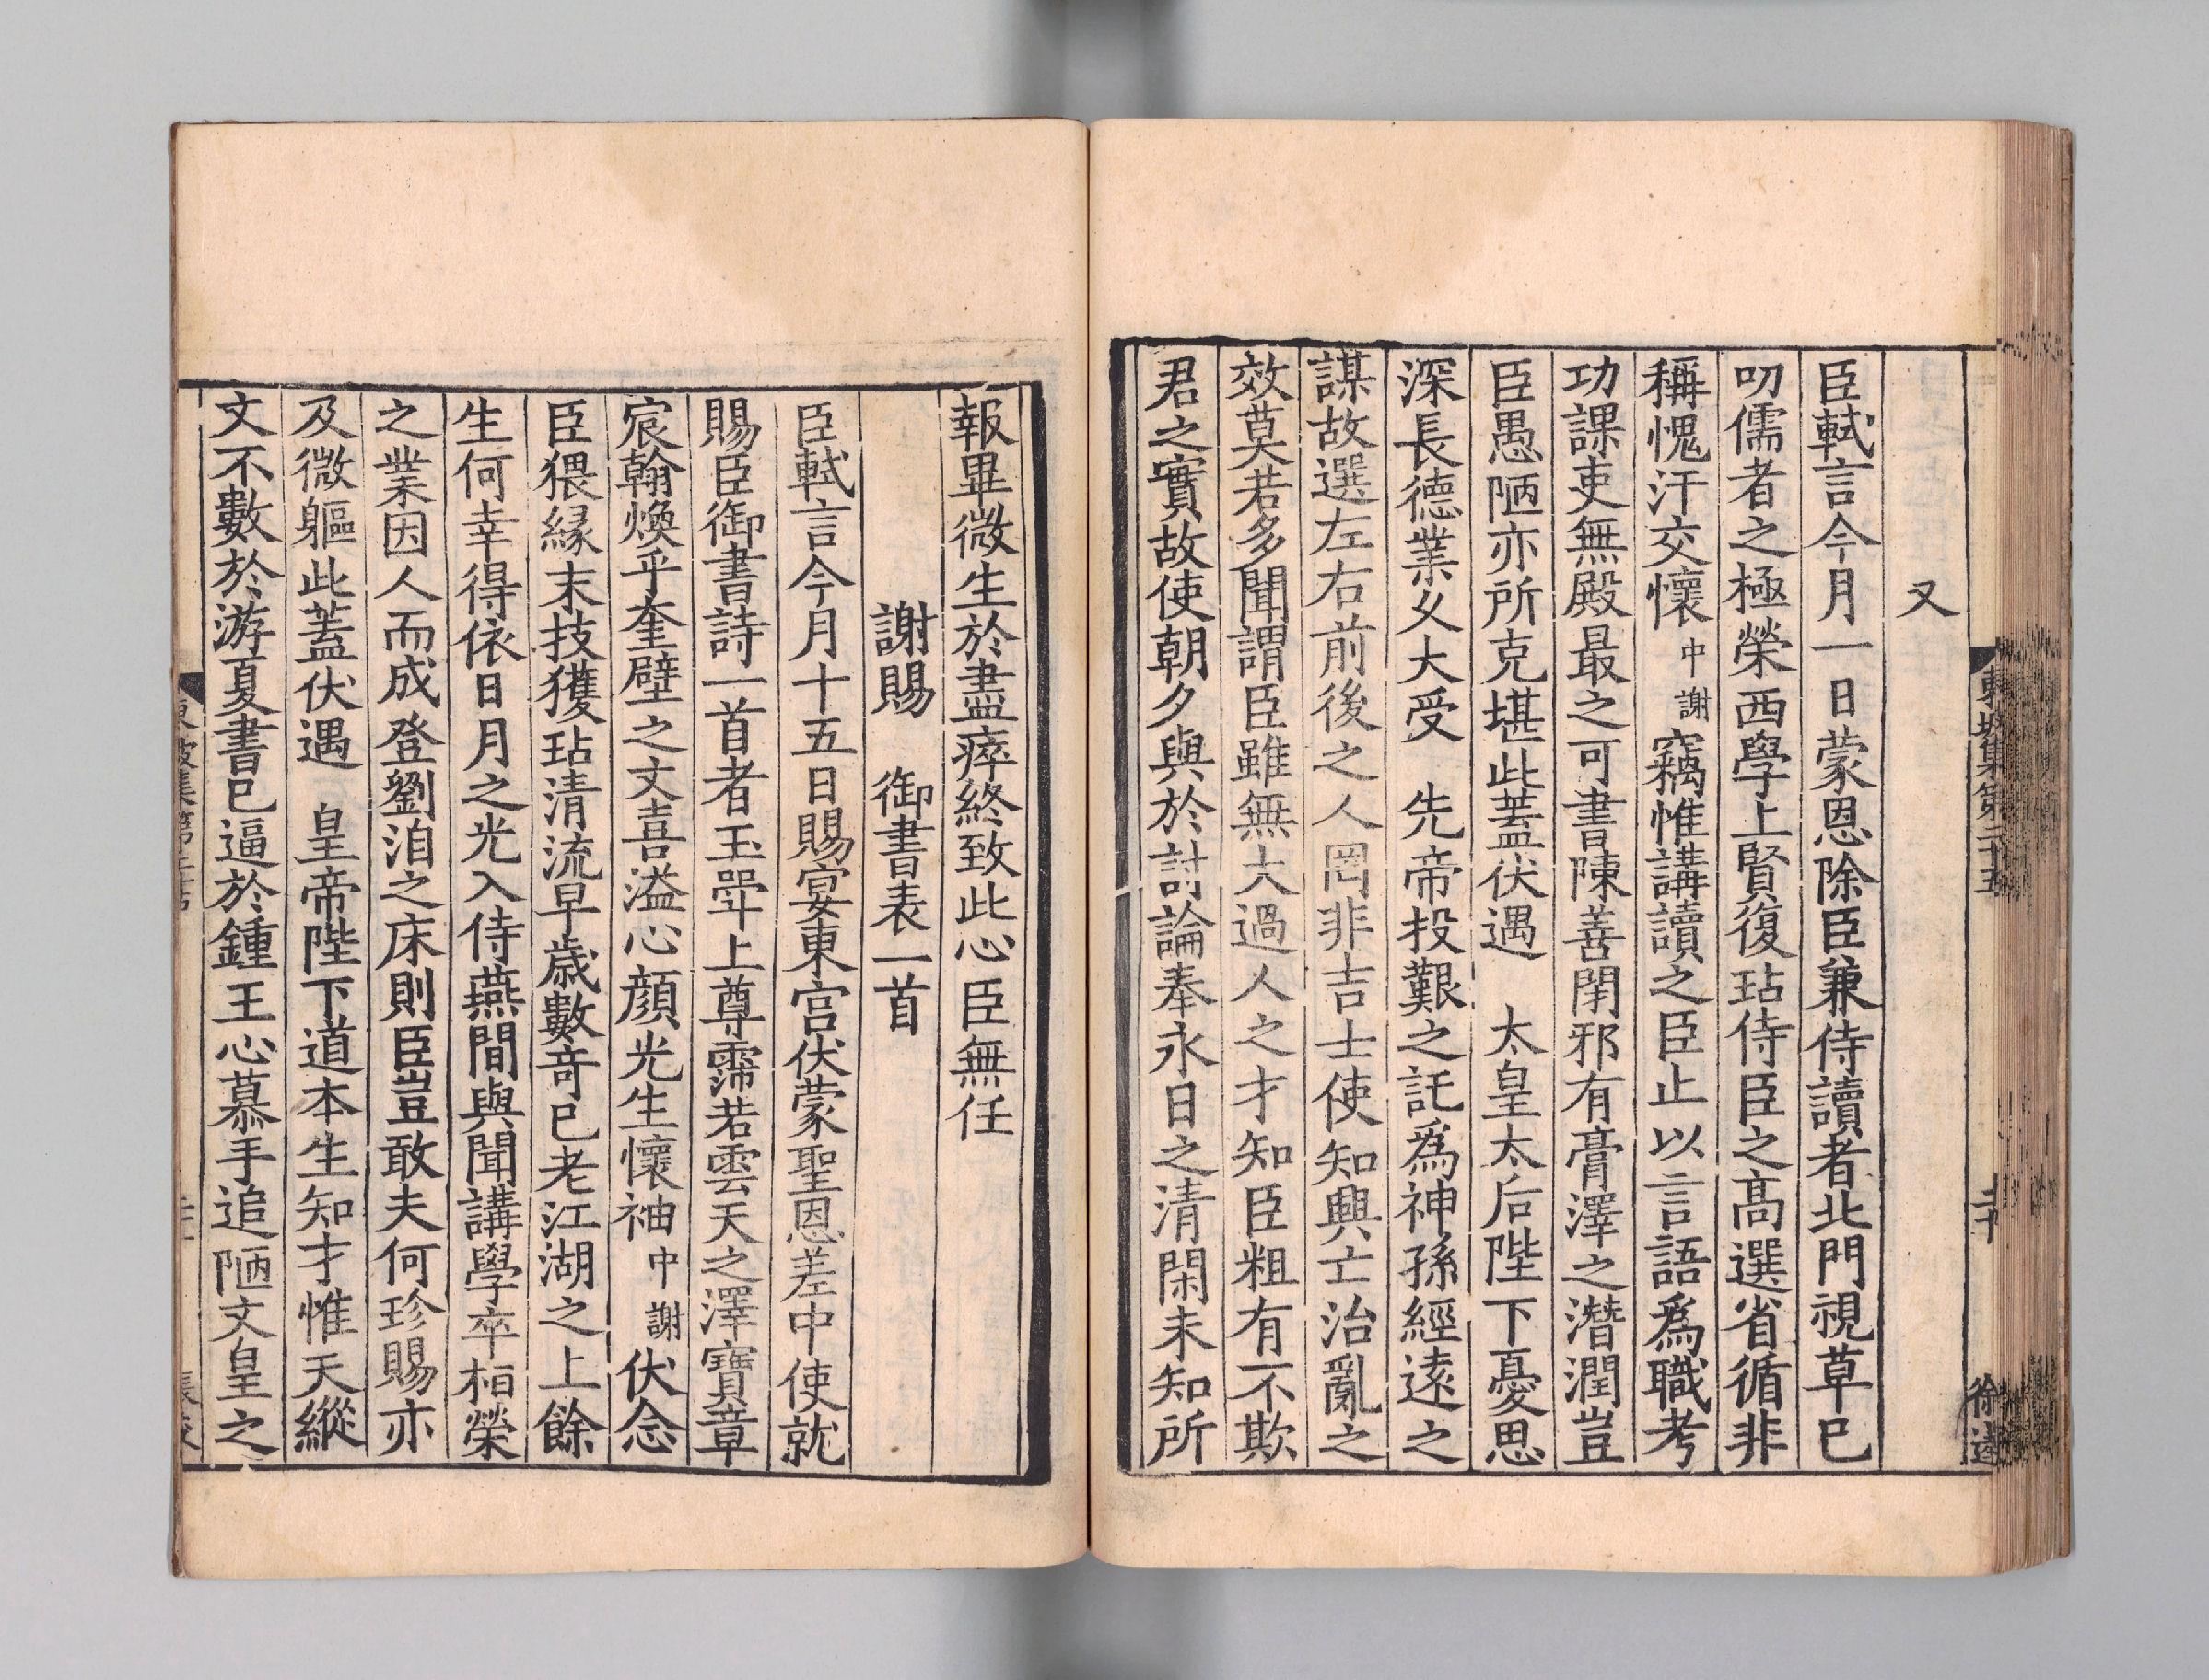 又
臣軾言今月一日蒙恩除臣兼侍讀者北門視草已
叨儒者之極榮西學上賢復玷侍臣之高選省循非
稱愧汗交懷中謝竊惟講讀之臣止以言語爲職考
功課吏無殿最之可書陳善閉邪有膏澤之潛潤豈
臣愚陋亦所克堪此蓋伏遇　太皇太后陛下憂思
深長德業久大受　先帝投艱之託爲神孫經遠之
謀故選左右前後之人罔非吉士使知興亡治亂之
效莫若多聞謂臣雖無大過人之才知臣粗有不欺
君之實故使朝夕與於討論奉永日之清閑未知所
東坡集第二十五
二十
徐遠
報畢微生於盡瘁終致此心臣無任
謝賜　御書表一首
臣軾言今月十五日賜宴東宮伏蒙聖恩差中使就
賜臣御書詩一首者玉斝上尊霈若雲天之澤寶章
宸翰煥乎奎壁之文喜溢心顔光生懷袖中謝伏念
臣猥緣末技獲玷清流早歲數奇已老江湖之上餘
生何幸得依日月之光入侍燕間與聞講學卒桓榮
之業因人而成登劉洎之床則臣豈敢夫何珍賜亦
及微軀此蓋伏遇　皇帝陛下道本生知才惟天縱
文不數於游夏書已逼於鍾王心慕手追陋文皇之